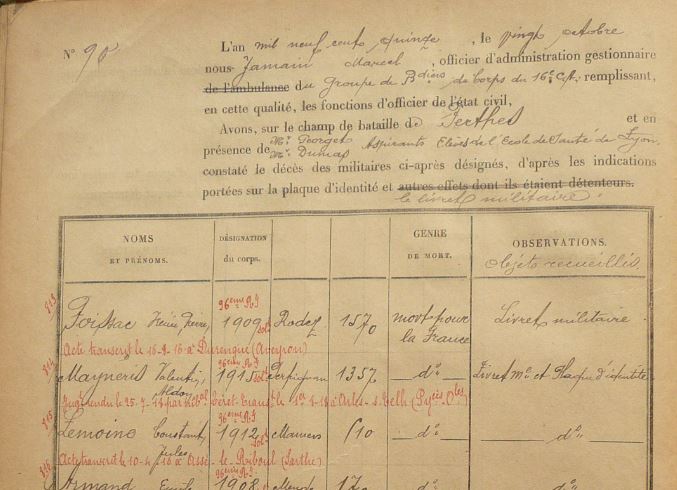 N° 90
L'an mil neuf cent quinze, le vingt octobre
nous Jamain Marcel, officier d'administration gestionnaire
de l'ambulance du Groupe de Bdiers de Corps du 16e C.A. remplissant,
en cette qualité, les fonctions d'officier de l'état civil,
Avons, sur le champ de bataille de Perthes et en
présence de Mr. Georget
Mr. Dumas Aspirants Elèves de l'Ecole de Santé de Lyon
constaté le décès des militaires ci-après désignés, d'après les indications
portées sur la plaque d'identité et autres effets dont ils étaient détenteurs.
le livret militaire.
NOMS
ET PRÉNOMS.
DÉSIGNATION
du corps.
GENRE
DE MORT.
OBSERVATIONS.
Objets recueillis
813
96eme R.I
Foissac Henri, Pierre, 1909 sol Rodez 1570 mort pour la France Livret militaire
Acte transcrit le 16-2-16 à (Aveyron)
814
96eme R.I
Mayneris Valentin, 1915 sol Perpignan 1357 do Livret Mre et Plaque d'identité
Jugt rendu le 25-7- par Céret le à Arles-s-
815
96eme R.I
Lemoine Constant, Jules 1912 sol Mamers 610 do do
Acte transcrit le 10-4-16 à Assé-le-Riboul (Sarthe)
816
96eme R.I
Armand 1908 Mende do do